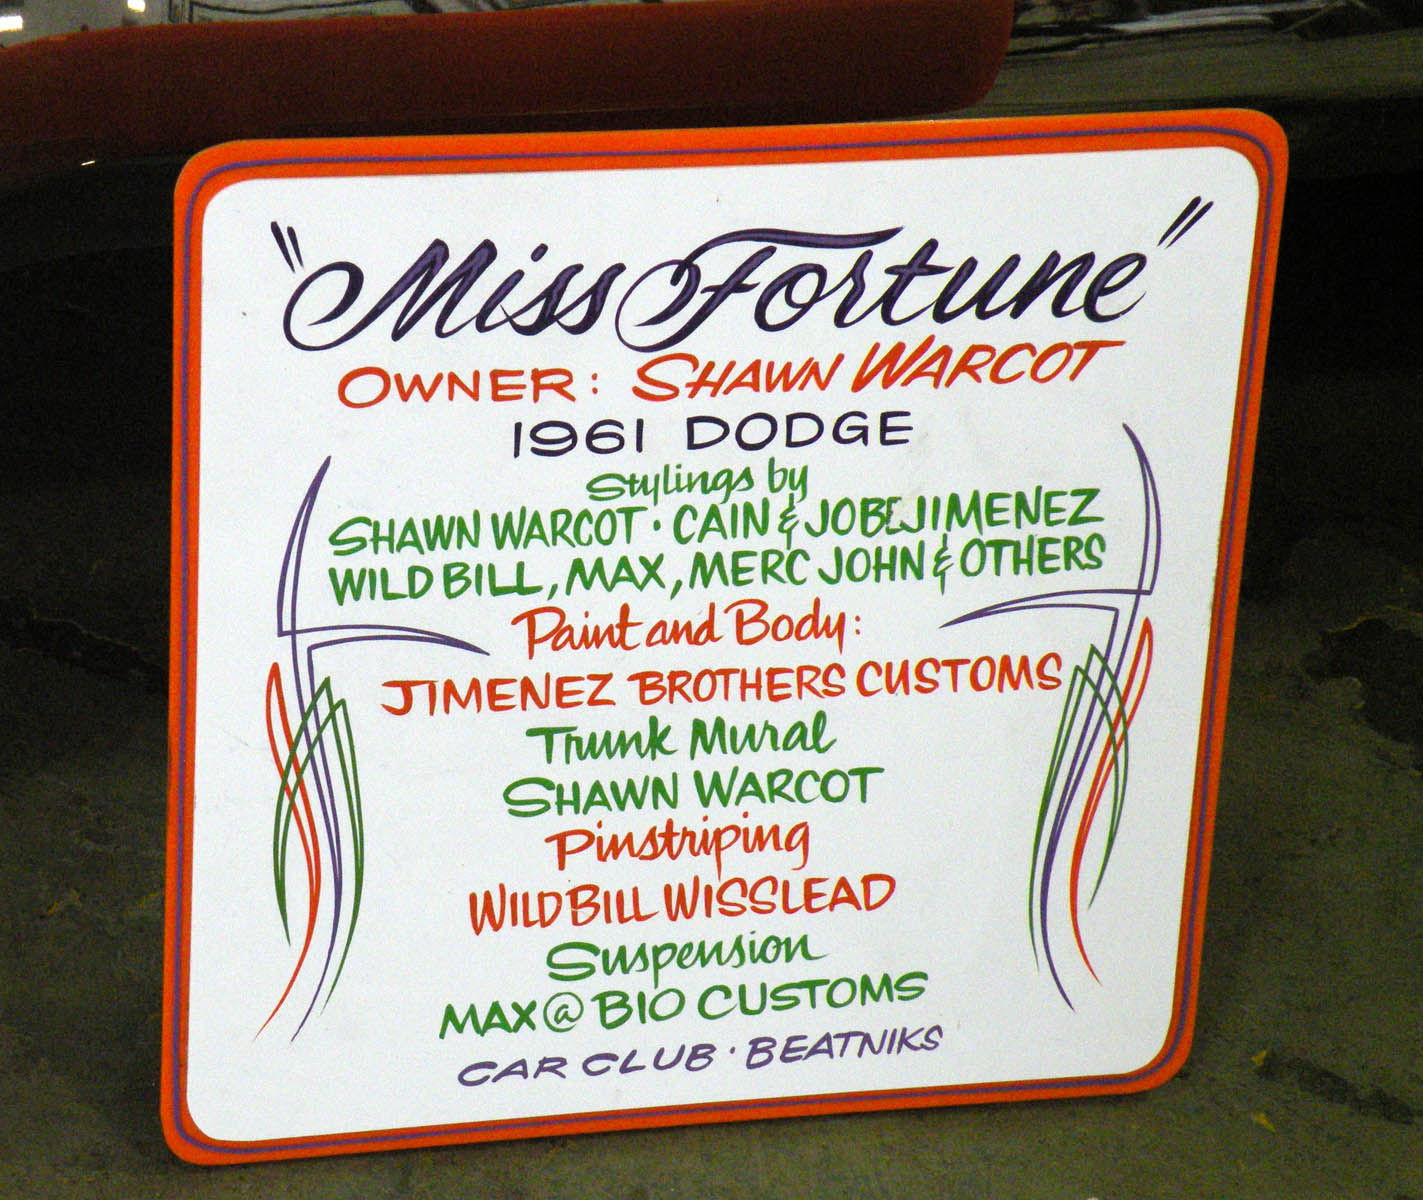 "Miss Fortune"
OWNER: SHAWN WARCOT
1961 DODGE
Stylings by
SHAWN WARCOT · CAIN & JOBE JIMENEZ
WILD BILL, MAX, MERC JOHN & OTHERS
Paint and Body:
JIMENEZ BROTHERS CUSTOMS
Trunk Mural
SHAWN WARCOT
Pinstriping
WILD BILL WISSLEAD
Suspension
MAX @ BIO CUSTOMS
CAR CLUB · BEATNIKS